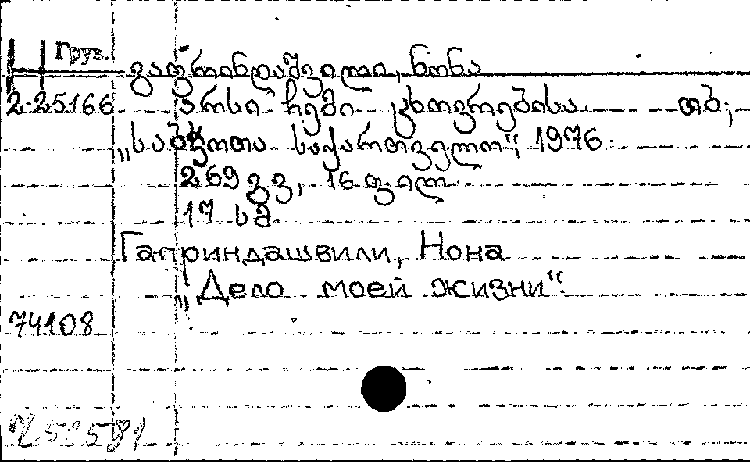 Груз.
გაფრინდაშვილი, ნონა
2-25166 არსი ჩემი ცხოვრებისა თბ.,
„საბჭოთა საქართველო“, 1976
269 გვ, 16 ფილ
17 სმ
Гаприндашвили, Нона
„Дело моей жизни“
74108